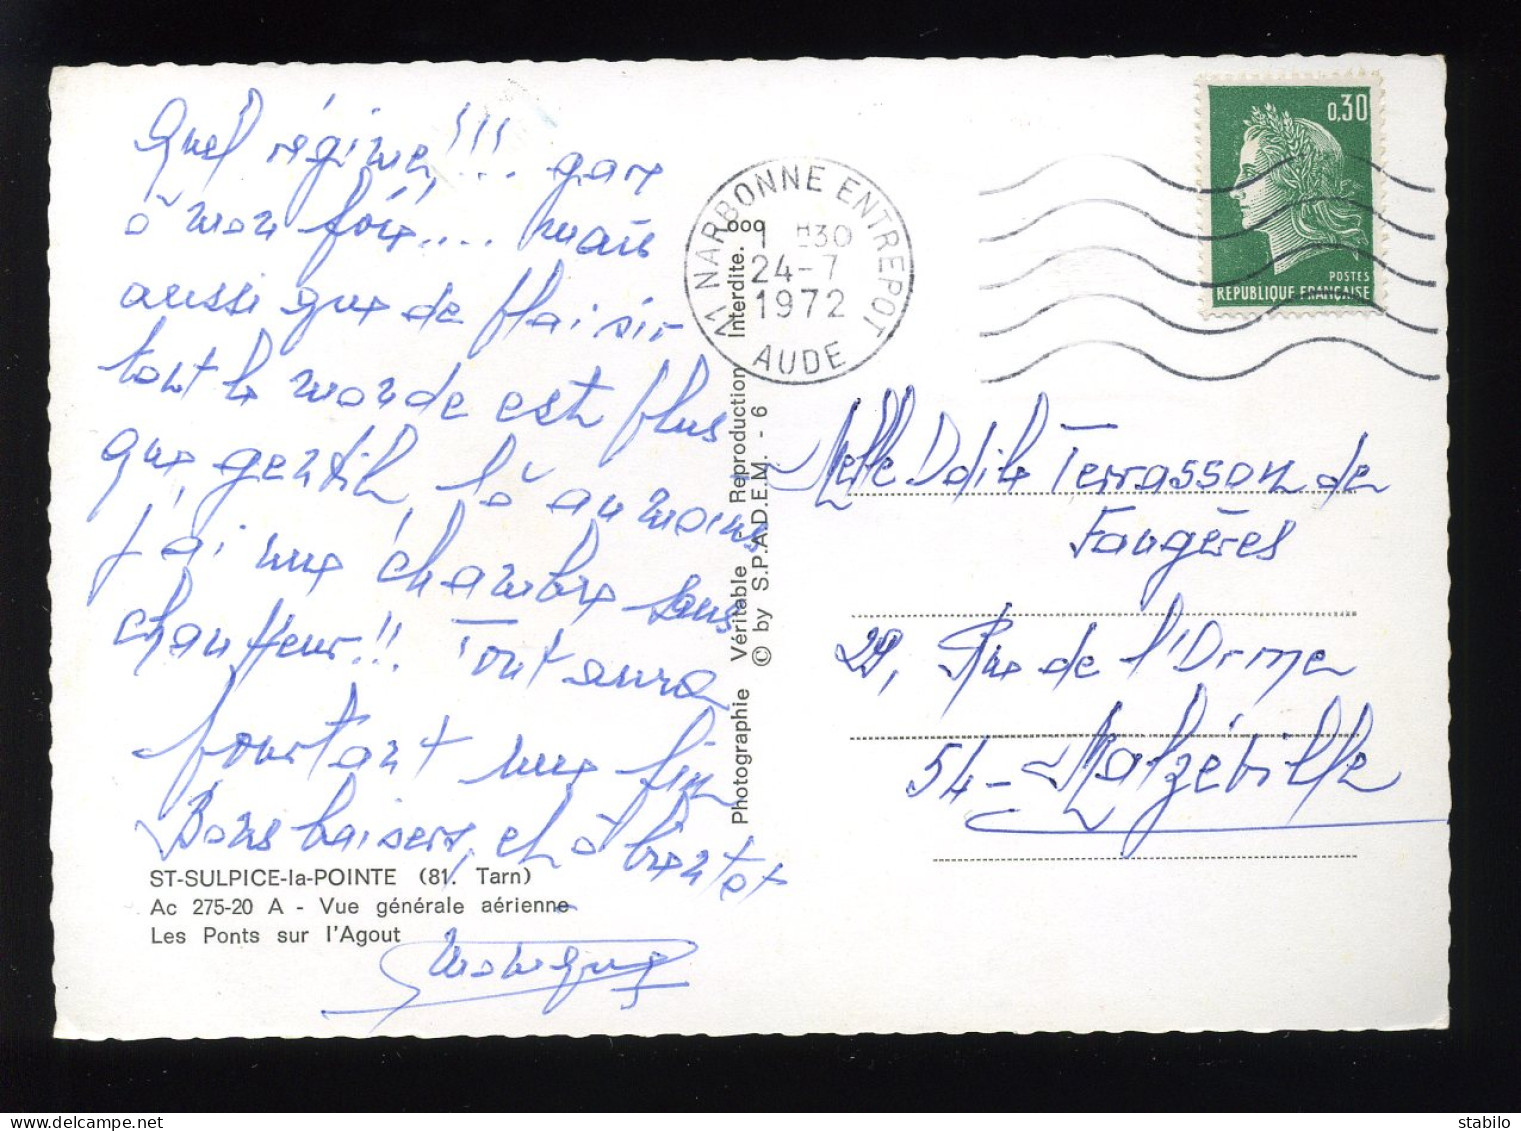 Quel régime!!!... gare
à mon foie.... mais
aussi que de plaisir
tout le monde est plus
que gentil, là au moins
j'ai une chambre sans
chauffeur!!. Tout aura
pourtant une fin
Bons baisers, et à bientot
Monique
ST-SULPICE-la-POINTE (81. Tarn)
Ac 275-20 A - Vue générale aérienne
Les Ponts sur l'Agout
Photographie Véritable Reproduction Interdite.
© by S.P.A.D.E.M. - 6
11 NARBONNE ENTREPOT
1 H30
24-7
1972
AUDE
0,30
POSTES
REPUBLIQUE FRANÇAISE
Melle Odile Terrasson de
Fougères
29, Rue de l'Orme
54- Malzéville
delcampe.net
stabilo